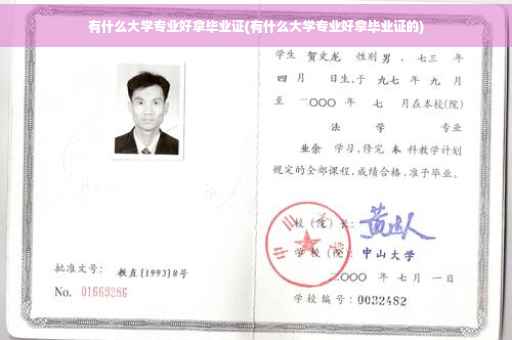 有什么大学专业好拿毕业证(有什么大学专业好拿毕业证的)
学生 贺文龙 性别 男 、七三 年
四 月 日生,于 九七 年 九 月
至 二〇〇〇 年 七 月在本校(院)
法 学 专业
业余 学习,修完 本 科教学计划
规定的全部课程,成绩合格,准予毕业。
校(院)长:
学校(院): 中山大学
二〇〇〇 年 七 月 一 日
学校编号: 0032482
批准文号: 教直[1993]8号
No. 01669286